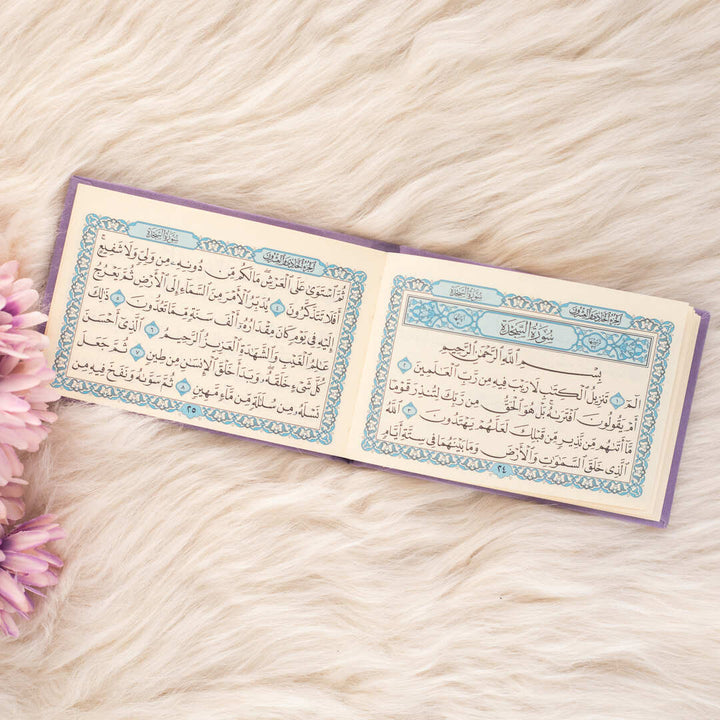 الجزء الحادي والعشرون
سورة السجدة
سورة السجدة
بسم الله الرحمن الرحيم
الٓمٓ ١ تَنزِيلُ ٱلْكِتَٰبِ لَا رَيْبَ فِيهِ مِن رَّبِّ ٱلْعَٰلَمِينَ ٢
أَمْ يَقُولُونَ ٱفْتَرَىٰهُ بَلْ هُوَ ٱلْحَقُّ مِن رَّبِّكَ لِتُنذِرَ قَوْمًا
مَّآ أَتَىٰهُم مِّن نَّذِيرٍ مِّن قَبْلِكَ لَعَلَّهُمْ يَهْتَدُونَ ٣ ٱللَّهُ
ٱلَّذِى خَلَقَ ٱلسَّمَٰوَٰتِ وَٱلْأَرْضَ وَمَا بَيْنَهُمَا فِى سِتَّةِ أَيَّامٍ
٢٤
الجزء الحادي والعشرون
سورة السجدة
ثُمَّ ٱسْتَوَىٰ عَلَى ٱلْعَرْشِ مَا لَكُم مِّن دُونِهِۦ مِن وَلِىٍّ وَلَا شَفِيعٍ
أَفَلَا تَتَذَكَّرُونَ ٤ يُدَبِّرُ ٱلْأَمْرَ مِنَ ٱلسَّمَآءِ إِلَى ٱلْأَرْضِ ثُمَّ يَعْرُجُ
إِلَيْهِ فِى يَوْمٍ كَانَ مِقْدَارُهُۥٓ أَلْفَ سَنَةٍ مِّمَّا تَعُدُّونَ ٥ ذَٰلِكَ
عَٰلِمُ ٱلْغَيْبِ وَٱلشَّهَٰدَةِ ٱلْعَزِيزُ ٱلرَّحِيمُ ٦ ٱلَّذِىٓ أَحْسَنَ
كُلَّ شَىْءٍ خَلَقَهُۥ وَبَدَأَ خَلْقَ ٱلْإِنسَٰنِ مِن طِينٍ ٧ ثُمَّ جَعَلَ
نَسْلَهُۥ مِن سُلَٰلَةٍ مِّن مَّآءٍ مَّهِينٍ ٨ ثُمَّ سَوَّىٰهُ وَنَفَخَ فِيهِ مِن
٢٥